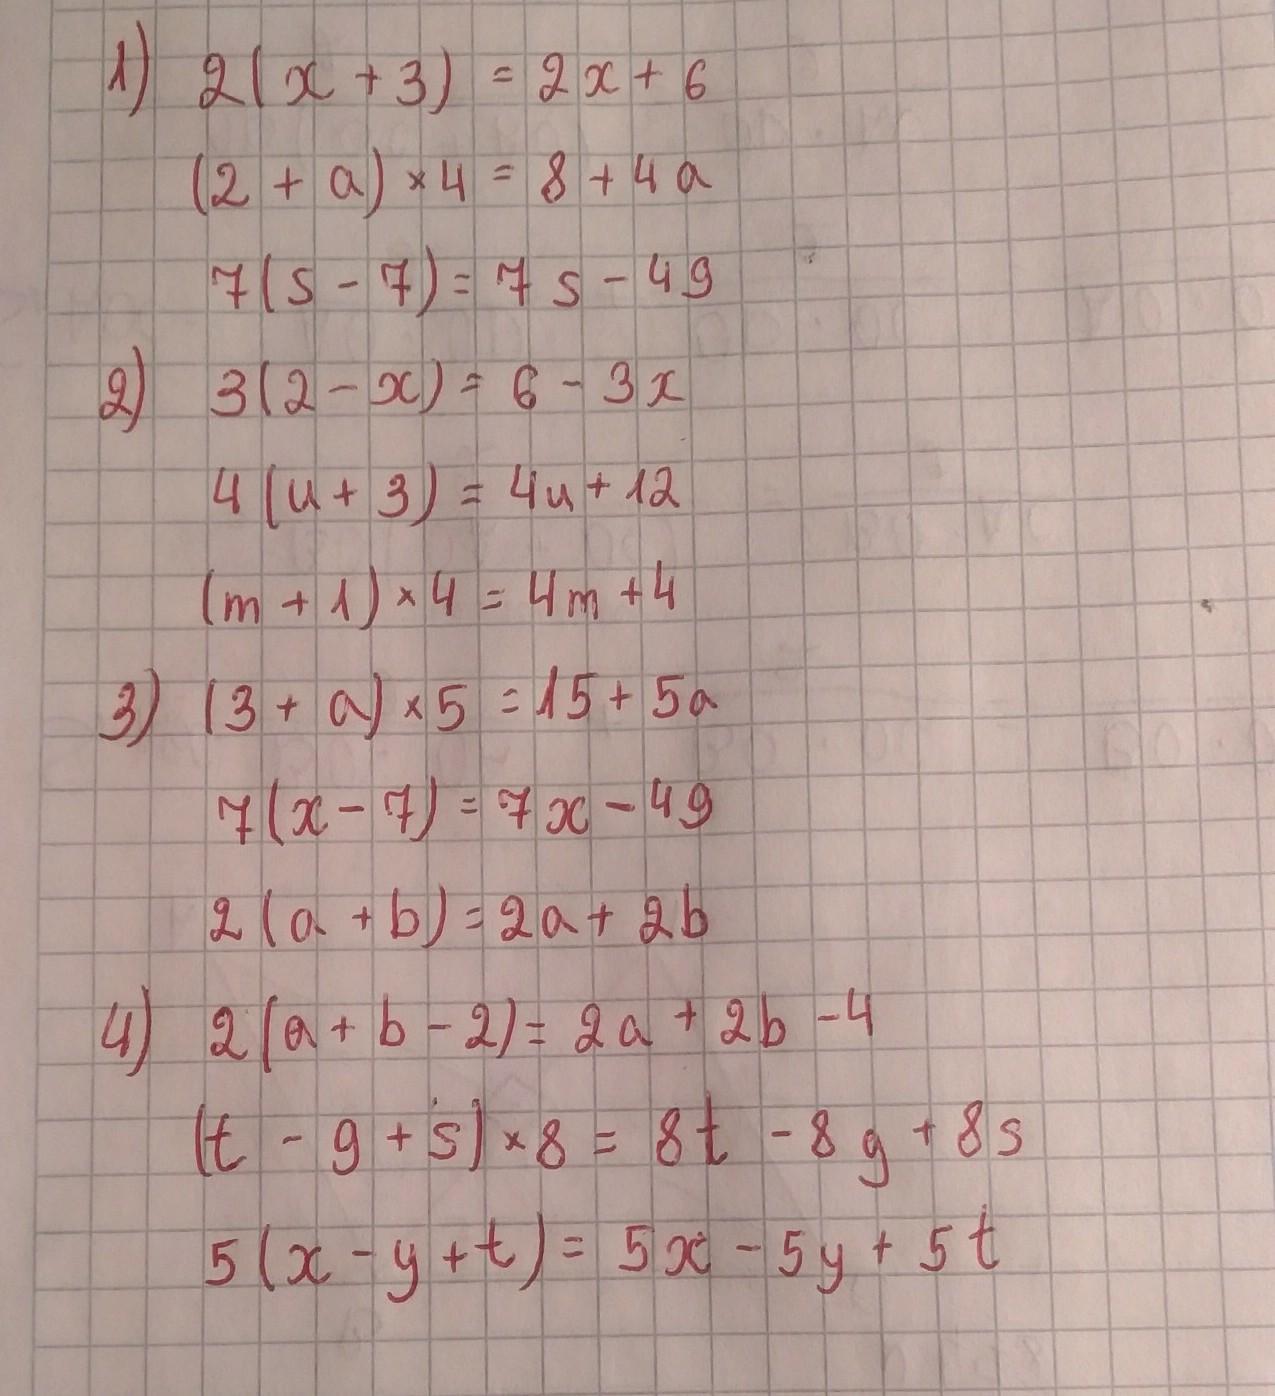 1) 2(x + 3) = 2x + 6
(2 + a) × 4 = 8 + 4a
7(s - 7) = 7s - 49
2) 3(2 - x) = 6 - 3x
4(u + 3) = 4u + 12
(m + 1) × 4 = 4m + 4
3) (3 + a) × 5 = 15 + 5a
7(x - 7) = 7x - 49
2(a + b) = 2a + 2b
4) 2(a + b - 2) = 2a + 2b - 4
(t - g + s) × 8 = 8t - 8g + 8s
5(x - y + t) = 5x - 5y + 5t